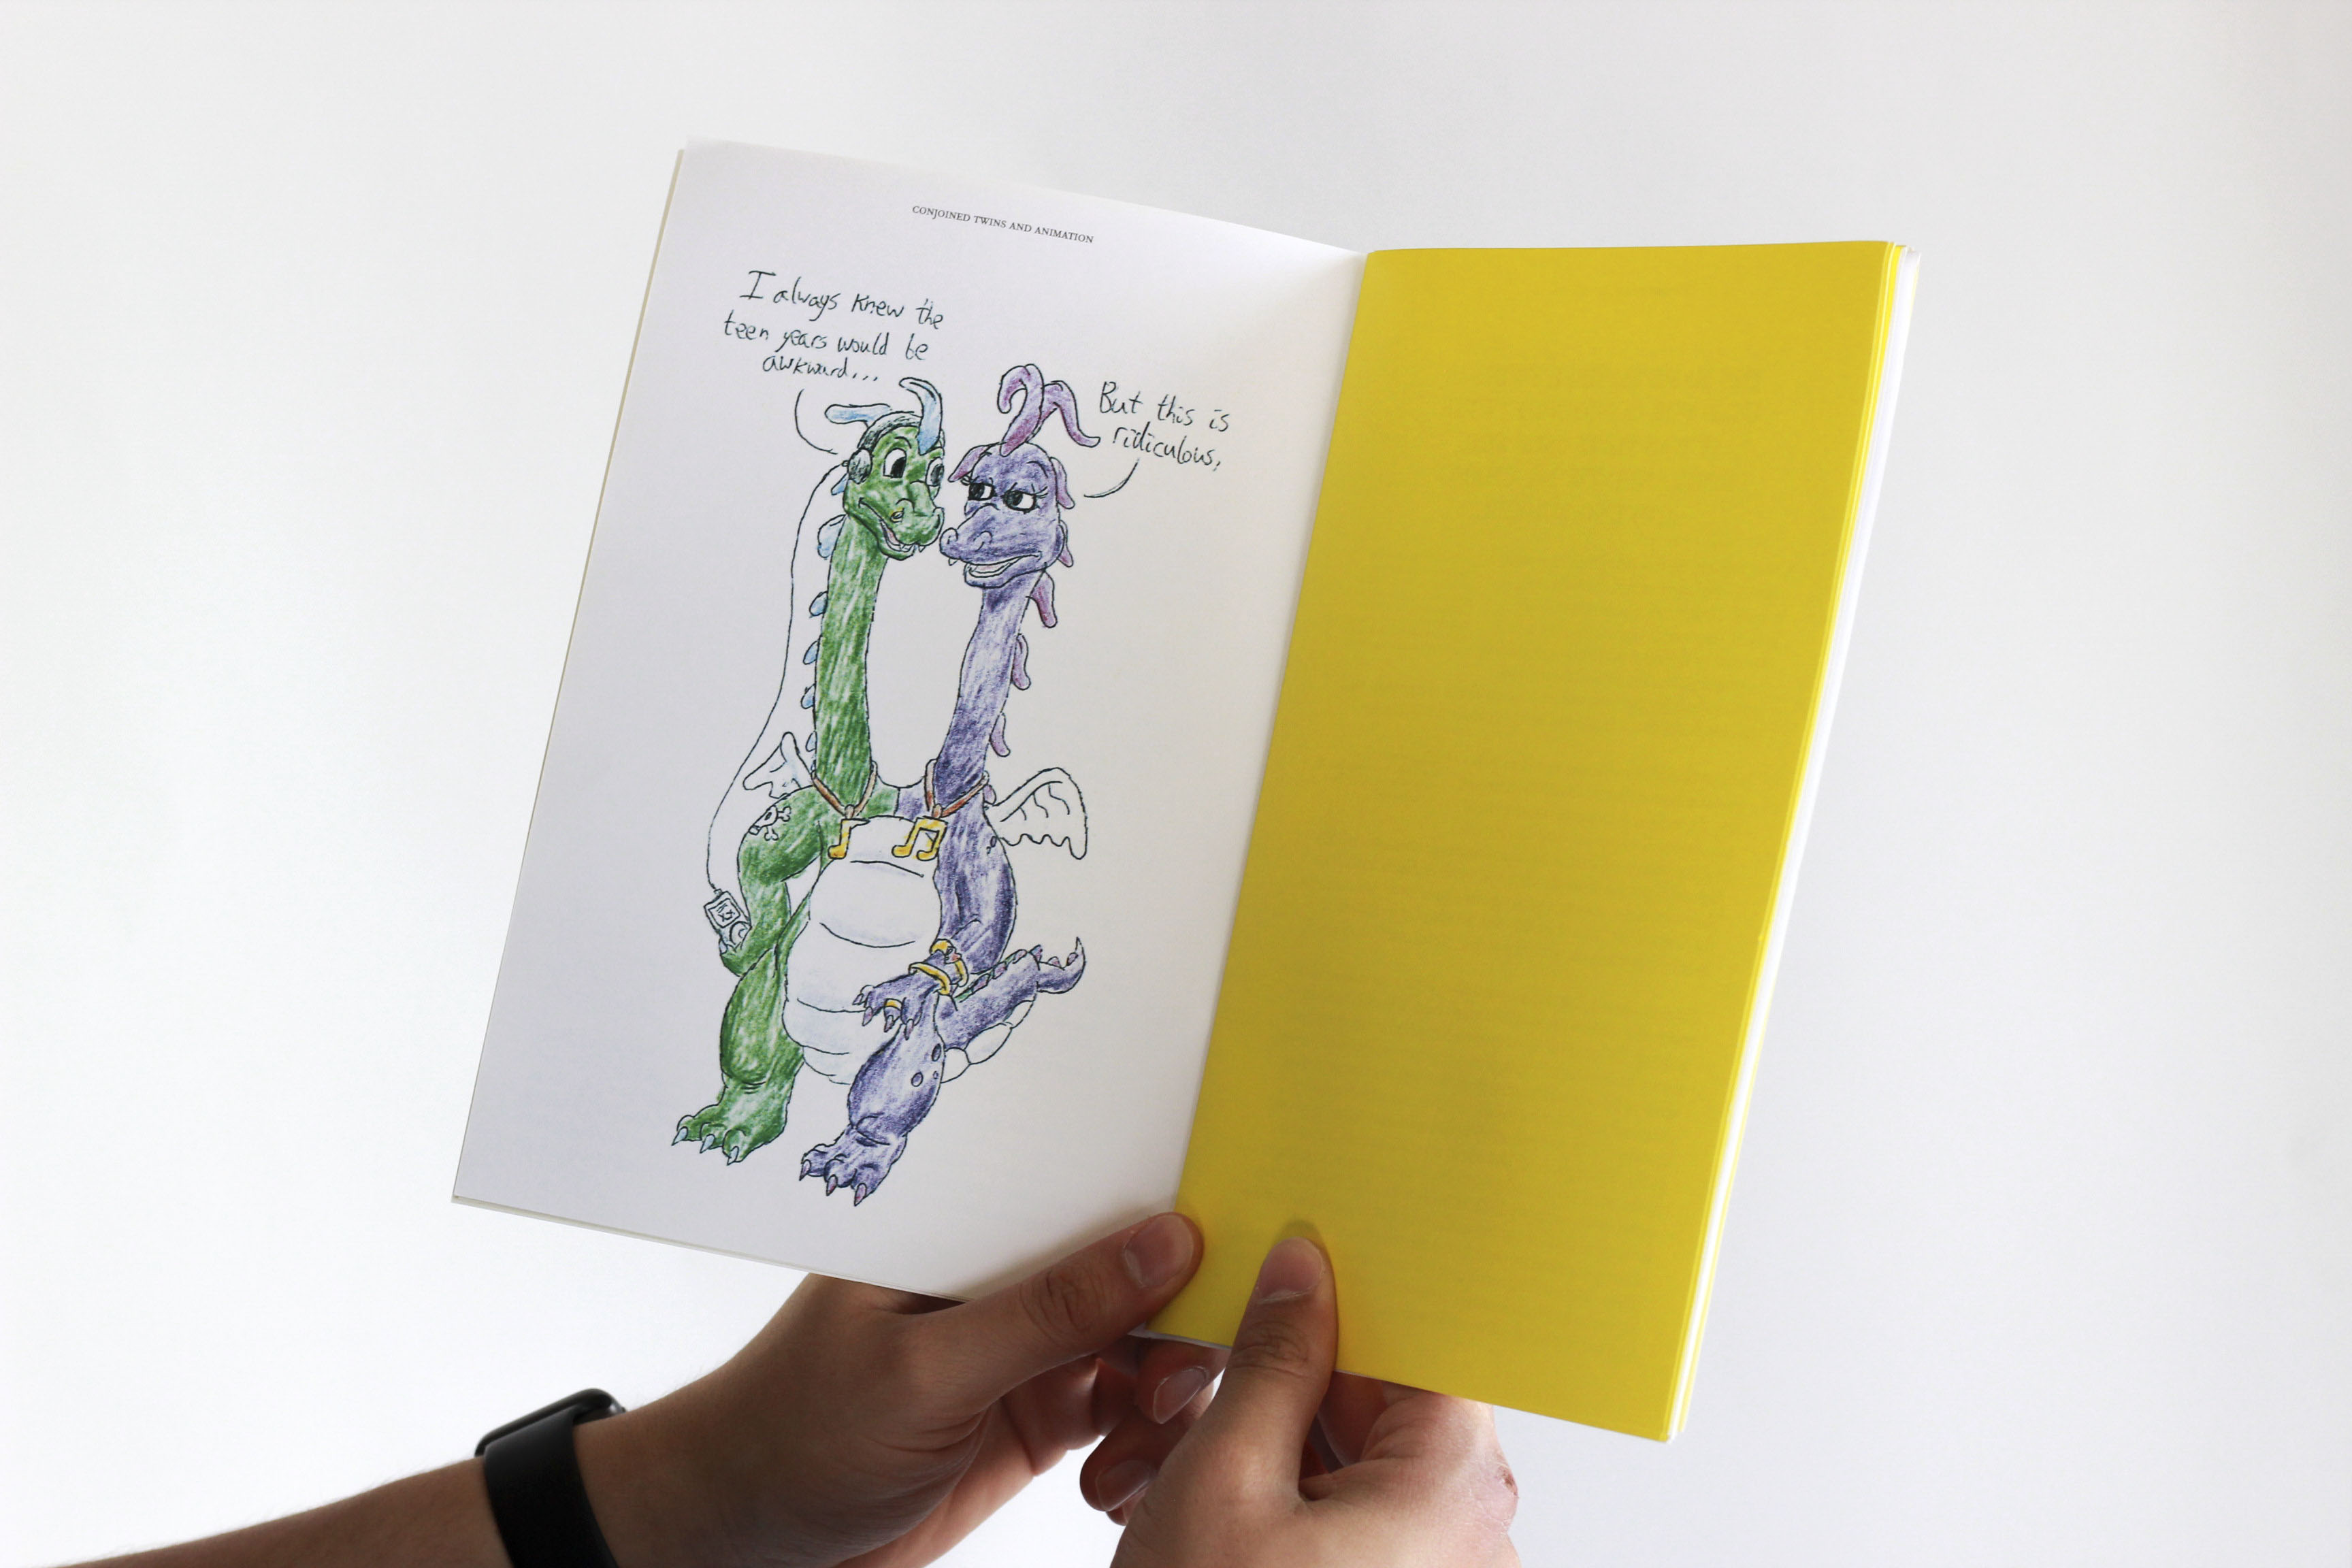 CONJOINED TWINS AND ANIMATION
I always knew the
teen years would be
awkward...
But this is
ridiculous,